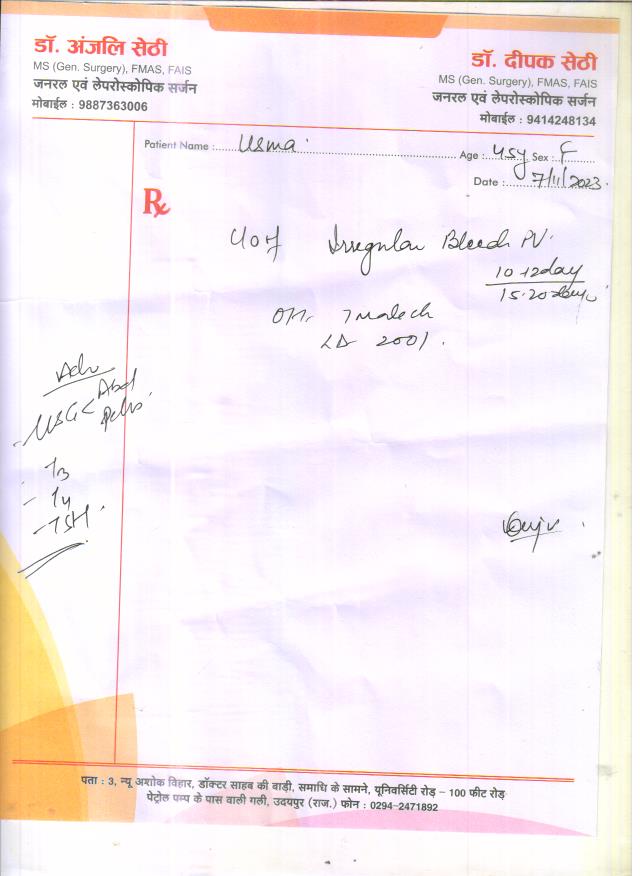 डॉ. अंजलि सेठी
MS (Gen. Surgery), FMAS, FAIS
जनरल एवं लेपरोस्कोपिक सर्जन
मोबाईल : 9887363006
डॉ. दीपक सेठी
MS (Gen. Surgery), FMAS, FAIS
जनरल एवं लेपरोस्कोपिक सर्जन
मोबाईल : 9414248134
Patient Name : Usma Age : 45y Sex : F
Date : 7/11/2023
Rx
Irregular Bleed PV.
10-12day
LD 2001.
Adv
- USG < Abd
Pelvis
- T3
- T4
- TSH.
पता : 3, न्यू अशोक विहार, डॉक्टर साहब की बाड़ी, समाधि के सामने, यूनिवर्सिटी रोड़ – 100 फीट रोड़
पेट्रोल पम्प के पास वाली गली, उदयपुर (राज.) फोन : 0294-2471892